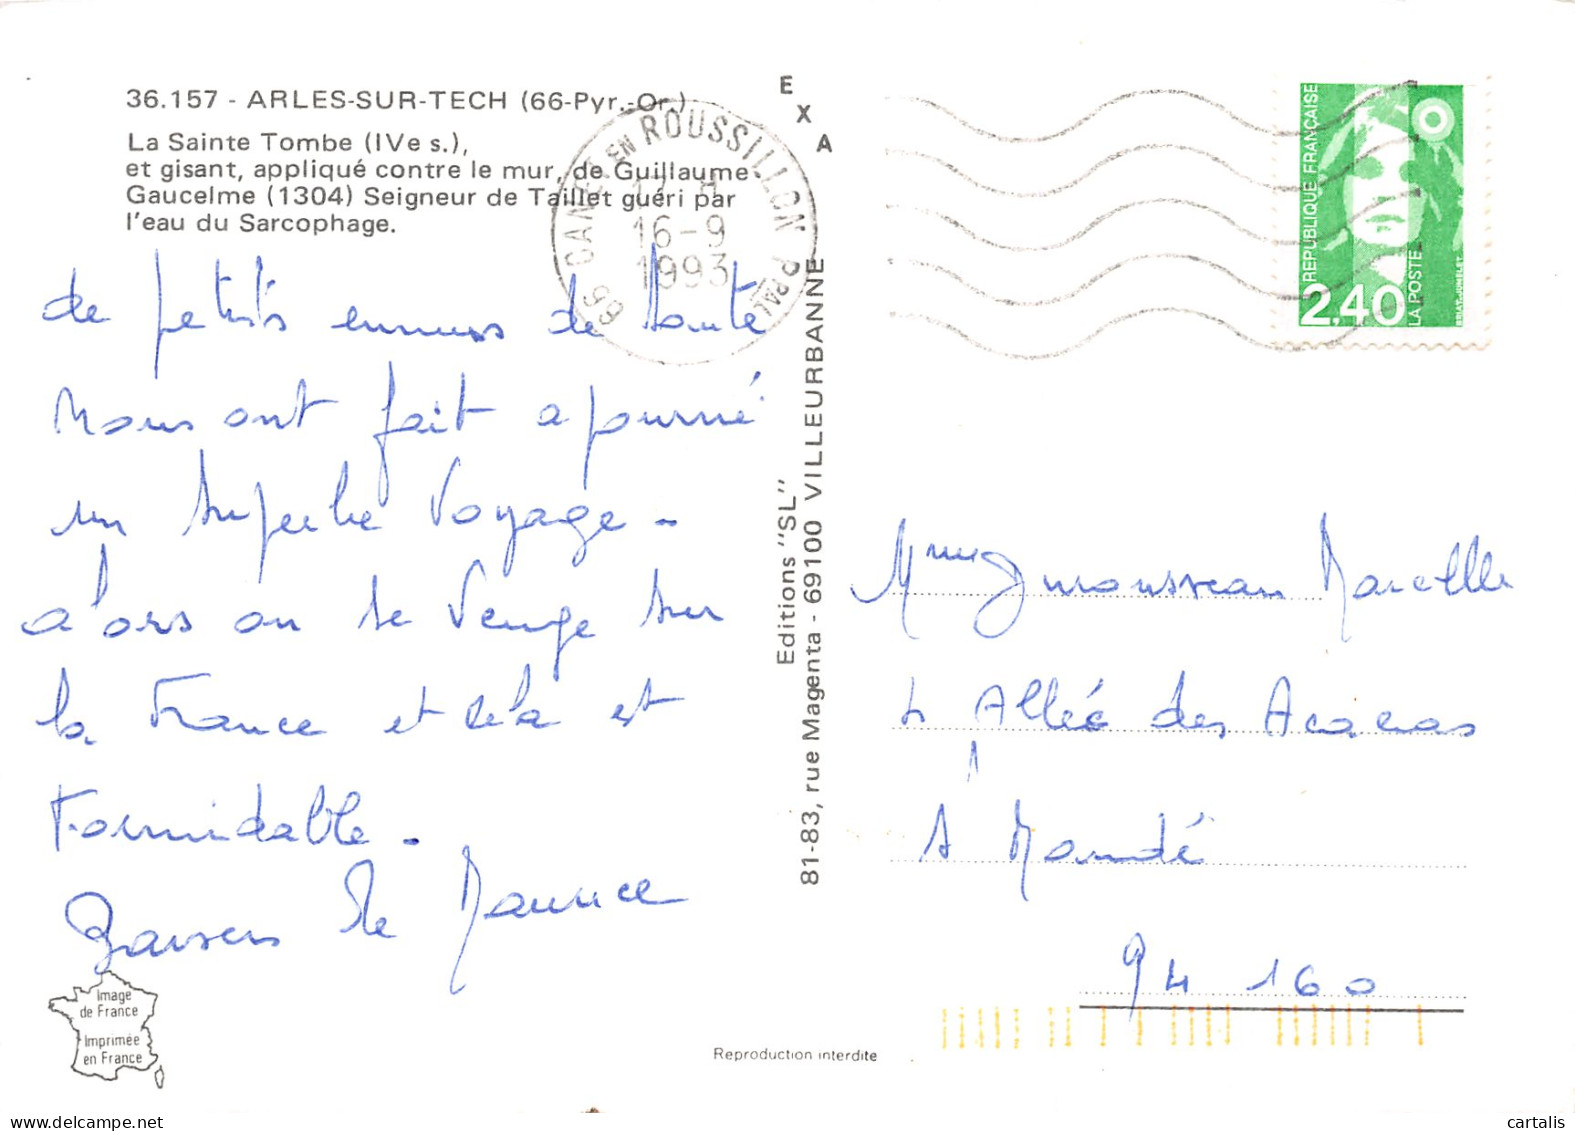 36.157 - ARLES-SUR-TECH (66-Pyr.-Or.)
La Sainte Tombe (IVe s.),
et gisant, appliqué contre le mur, de Guillaume
Gaucelme (1304) Seigneur de Taillet guéri par
l'eau du Sarcophage.
de petits ennuis de santé
nous ont fait ajourné
un superbe voyage -
alors on se venge sur
la France et cela est
Formidable -
Baisers de Maurice
Image
de France
Imprimée
en France
EXA
66 CANET EN ROUSSILLON P.PAL
16-9
1993
Editions "SL"
81-83, rue Magenta - 69100 VILLEURBANNE
Reproduction interdite
REPUBLIQUE FRANÇAISE
2,40
LA POSTE
BRIAT-JUMELET
Mme Marcelle
4 Allée des Acacias
St Mandé
94 160
cartalis